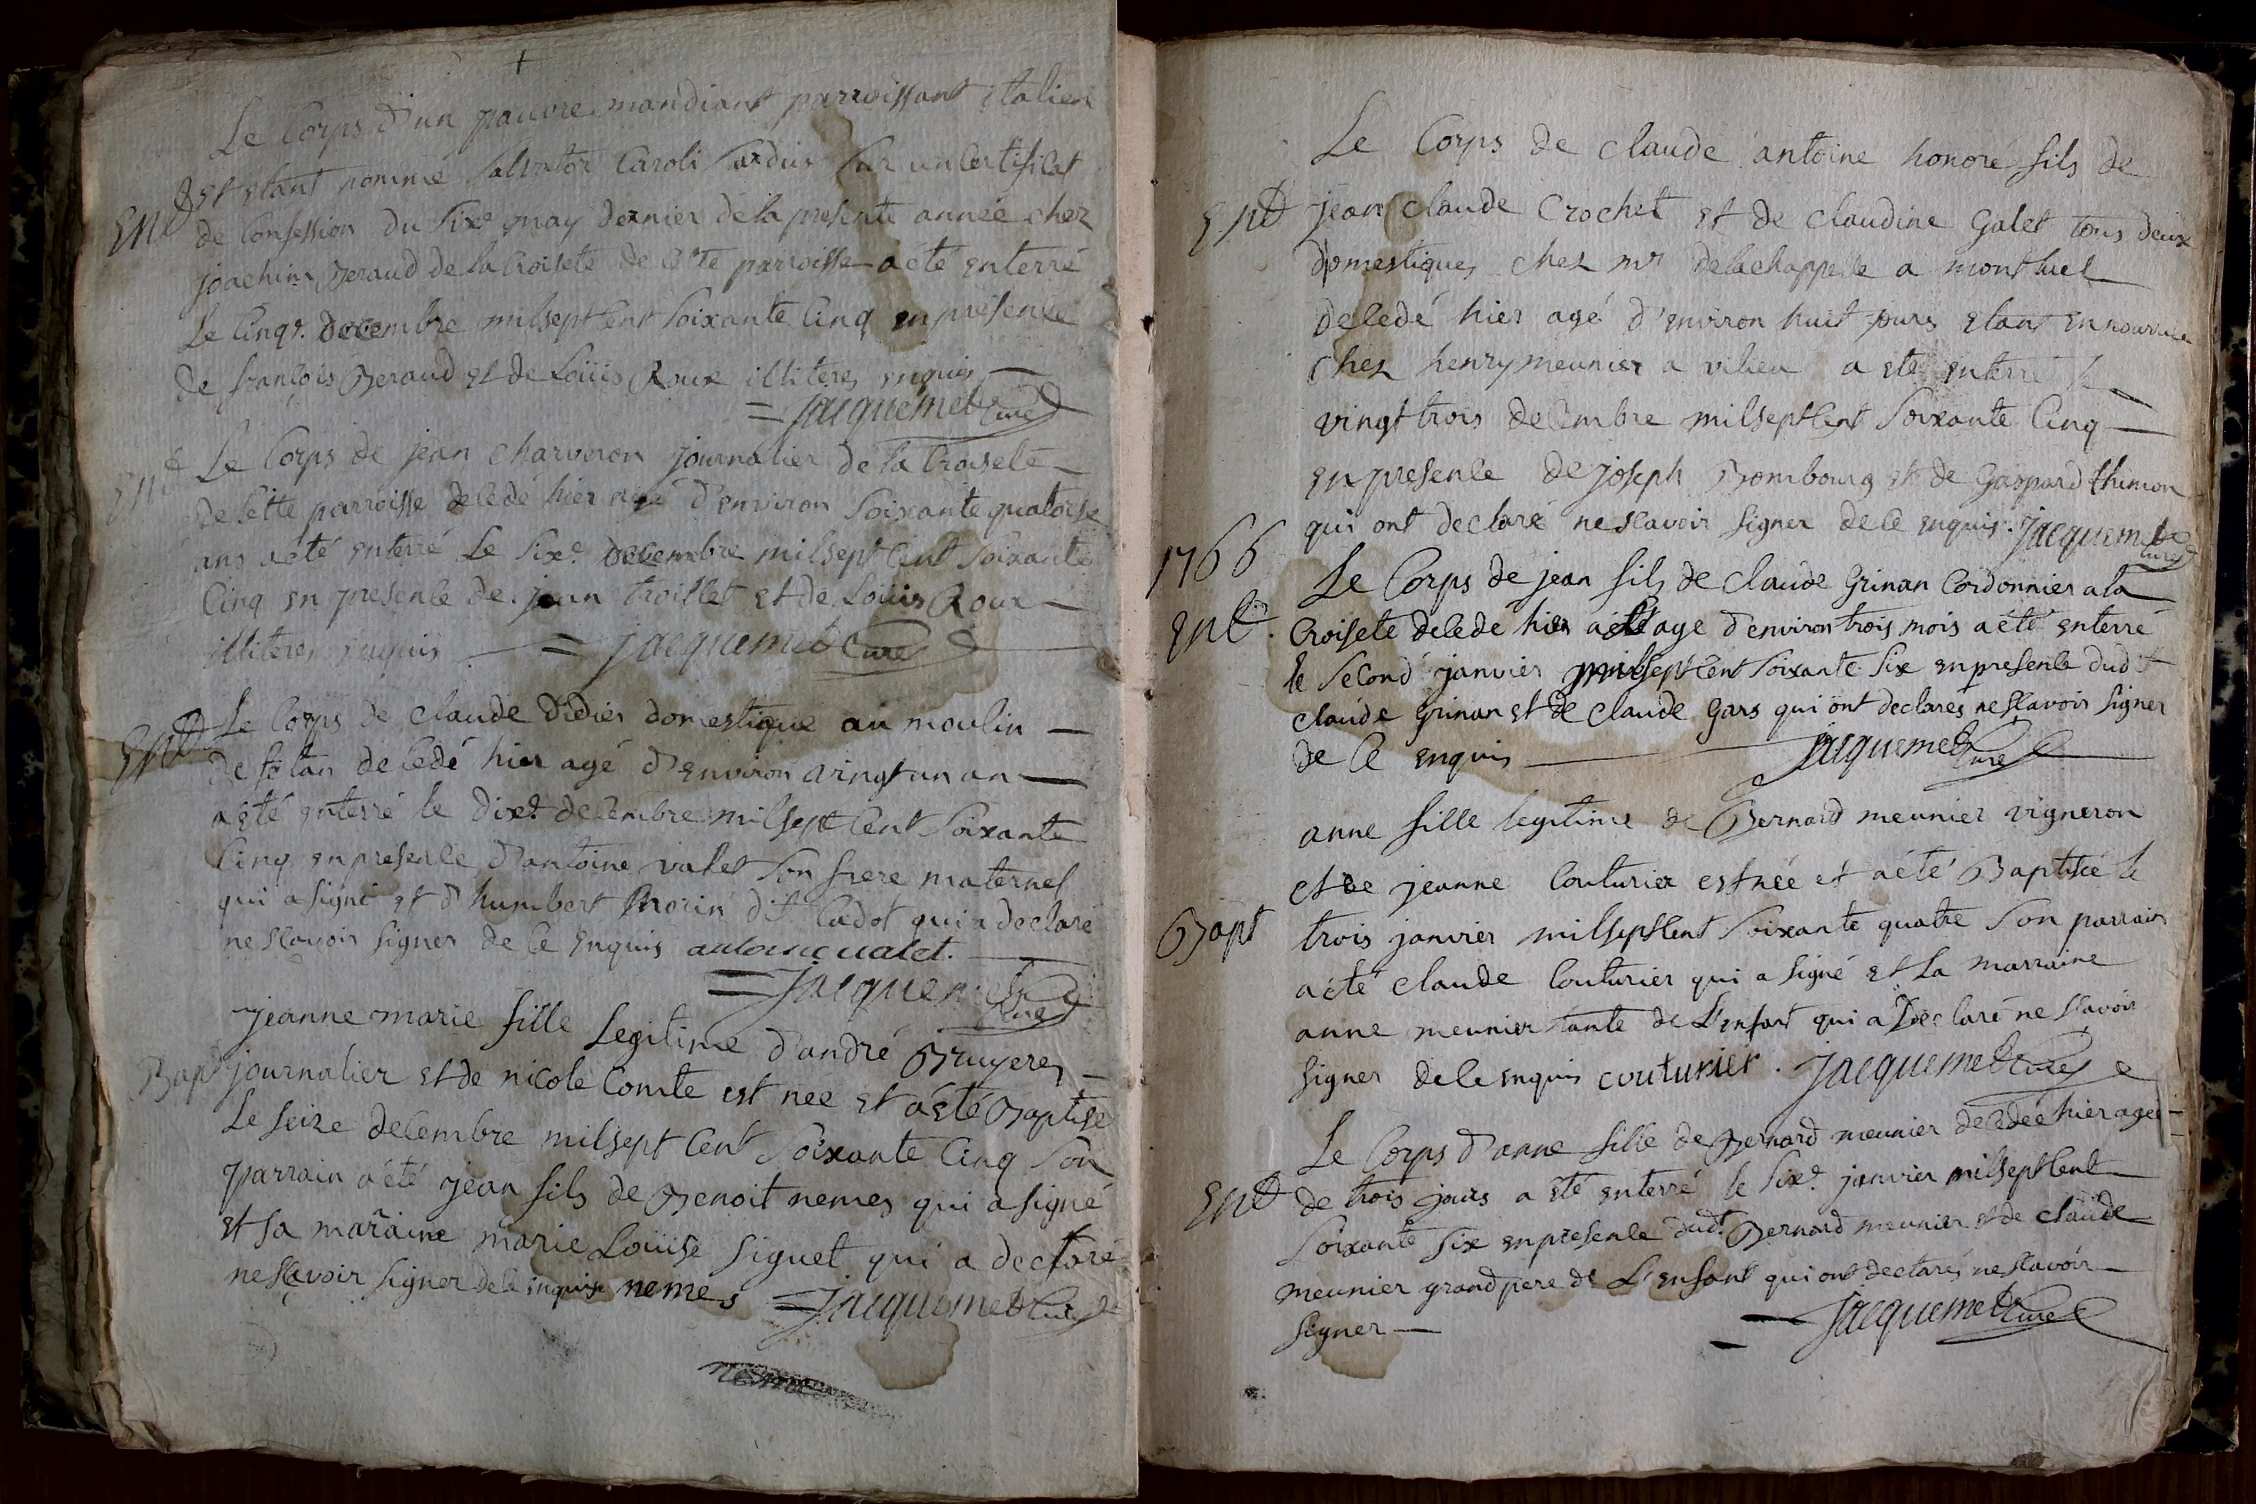 Le Corps d'un pauvre mandiant parroissant italien
Ent
et etant nommé Salvator Caroli sur un certificat
de Confession du Sixe may dernier de la presente année chez
joachim Beraud de la Croisete de cte parroisse a été enterré
Le Cinqe. decembre milsept Cent Soixante Cinq en présence
de françois Beraud et de Loüis Roux illiteres enquis
= Jacquemet Curé
Ent
Le Corps de jean Charveron journalier de la Croisete
de Cette parroisse decedé hier agé d'environ Soixante quatorse
ans a été enterré Le Sixe. decembre milsept Cent Soixante
Cinq en presence de jean troillet et de Loüis Roux
illiteres enquis = jacquemet Curé
Ent
Le Corps de Claude didier domestique au moulin
de decedé hier agé d'environ vingt un an
a été enterré le dixe. decembre milsept Cent Soixante
Cinq en presence d'antoine valet Son frere maternel
qui a signé et d'humbert Morin dit Cadot qui a declaré
ne sçavoir signer de ce Enquis antoine valet.
= Jacquemet Curé
jeanne marie fille Legitime d'andré Bruyeres
Bapt
journalier et de nicole Comte est nee et a été Baptise
Le seize decembre milsept Cent Soixante Cinq Son
parrain a été jean fils de Benoit nemes qui a signé
et sa maraine marie Loüise Siguet qui a declaré
ne sçavoir signer de ce enquise nemes = Jacquemet Curé
Le Corps de claude antoine honoré fils de
Ent
jean claude Crochet et de claudine Galet tous deux
domestiques chez mr delachappelle a montluel
decedé hier agé d'environ huit jours etant en nourrice
chez henry meunier a vilieu a eté enterré le
vingt trois decembre milsept Cent Soixante Cinq
en presence de joseph Bombourg et de Gaspard thimon
qui ont declaré ne scavoir signer de ce enquis. jacquemet
Curé
1766
Le Corps de jean fils de claude Grinan Cordonnier a la
Ent.
Croisete decedé hier age d'environ trois mois a été enterré
le second janvier milsept Cent Soixante Six en presence dudit
claude Grinan et de claude Gars qui ont declarés ne scavoir signer
de ce enquis Jacquemet Curé
anne fille legitime de Bernard meunier vigneron
et de jeanne Couturier est née et a été Baptisée le
Bapt
trois janvier milsept Cent Soixante quatre Son parrain
a été claude Couturier qui a signé et La marraine
anne meunier tante de L'enfant qui a declaré ne scavoir
signer de ce enquis couturier. jacquemet Curé
Le Corps d'anne fille de Bernard meunier decedée hier agée
Ent
de trois jours a été enterré le Sixe. janvier milsept Cent
Soixante Six en presence dudt. Bernard meunier et de claude
meunier grandpere de L'enfant qui ont declarés ne scavoir
signer
= Jacquemet Curé